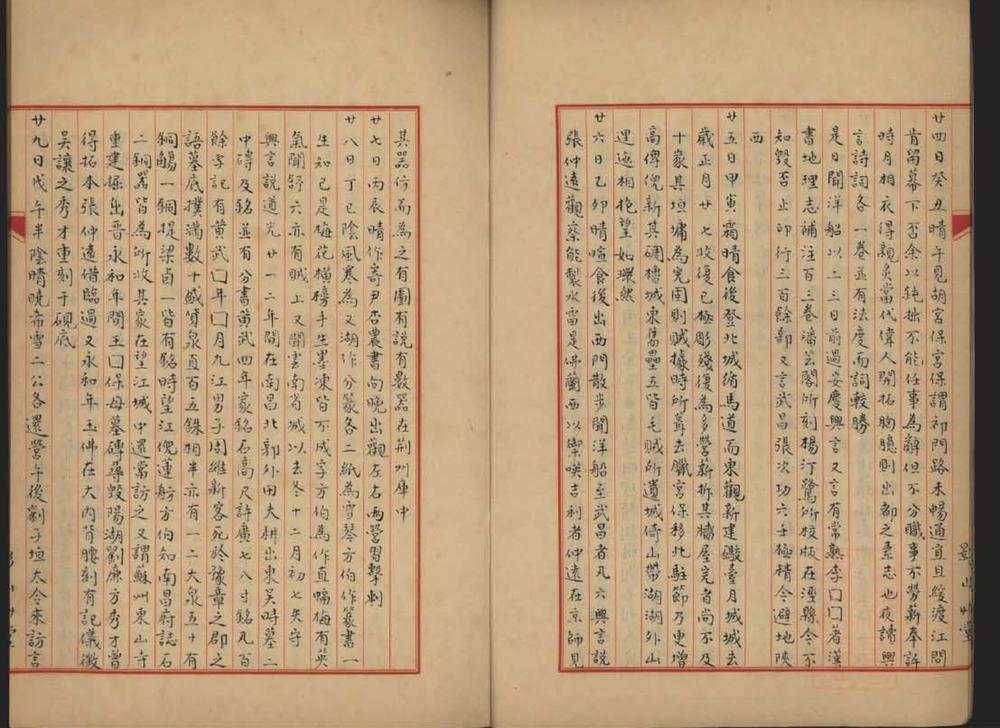 廿四日癸丑晴午見胡宮保宮保謂祁門路未暢通宜且緩渡江問
肯留幕下否余以鈍拙不能任事為辭但不分職事不勞薪奉許
時月相衣得親炙當代偉人開拓胸臆則出都之素志也夜讀興
言詩詞各一卷並有法度而詞較勝
是日聞洋船以二三日前過安慶興言又言有常熟李囗囗者漢
書地理志補注百三卷潘芸閣所刻楊汀鷺所校版在涇縣今不
知毀否止印行三百餘部又言武昌張次功六壬極精今避地陝
西
廿五日甲寅霜晴食後登北城循馬道而東觀新建敵臺月城城去
歲正月廿七收復已極彫殘復為多營薪拆其牆屋完者尚不及
十象其垣墉為完固則賊據時所葺去臘宮保移此駐節乃更增
高俾倪新其碉樓城東舊壘五皆毛賊所遺城倚山帶湖湖外山
迤邐相抱望如環然
廿六日乙卯晴暄食後出西門散步聞洋船至武昌者凡六興言說
張仲遠觀察能製水雷是佛蘭西以禦嘆吉利者仲遠在京師見
其器仿而為之有圖有說有數器在荊州庫中
廿七日丙辰晴作寄尹杏農書向晚出觀左右兩營習擊刺
廿八日丁巳陰風寒為又湖作分篆各二紙為雪琴方伯作篆書一
生知己是梅花橫榜手生墨凍皆不成字方伯為作直幅梅有英
氣聞舒六亦有賊上又聞雲南省城以去冬十二月初七失守
興言說道光廿一二年間在南昌北郭外田夫耕出東吳時墓二
中磚及銘並有分書黃武四年冢銘石高尺許廣七八寸銘凡百
餘字記有黃武囗年囗月九江男子周維新客死於豫章之郡之
語墓底撲滿數十盛貨泉直百五銖相半亦有一二大泉五十有
銅觴一銅提梁卣一皆有銘時望江倪蓮舫方伯知南昌府誌石
二銅器皆為所收其家在望江城中還當訪之又謂蘇州東山寺
重建掘出晉永和年間王囗保母墓磚尋毀陽湖劉廉方秀才曾
得拓本張仲遠借臨過又永和年玉佛在大內背腰刻有記儀徵
吳讓之秀才重刻于硯底
廿九日戊午半陰晴曉希雪二公各還營午後劉子垣太令來訪言